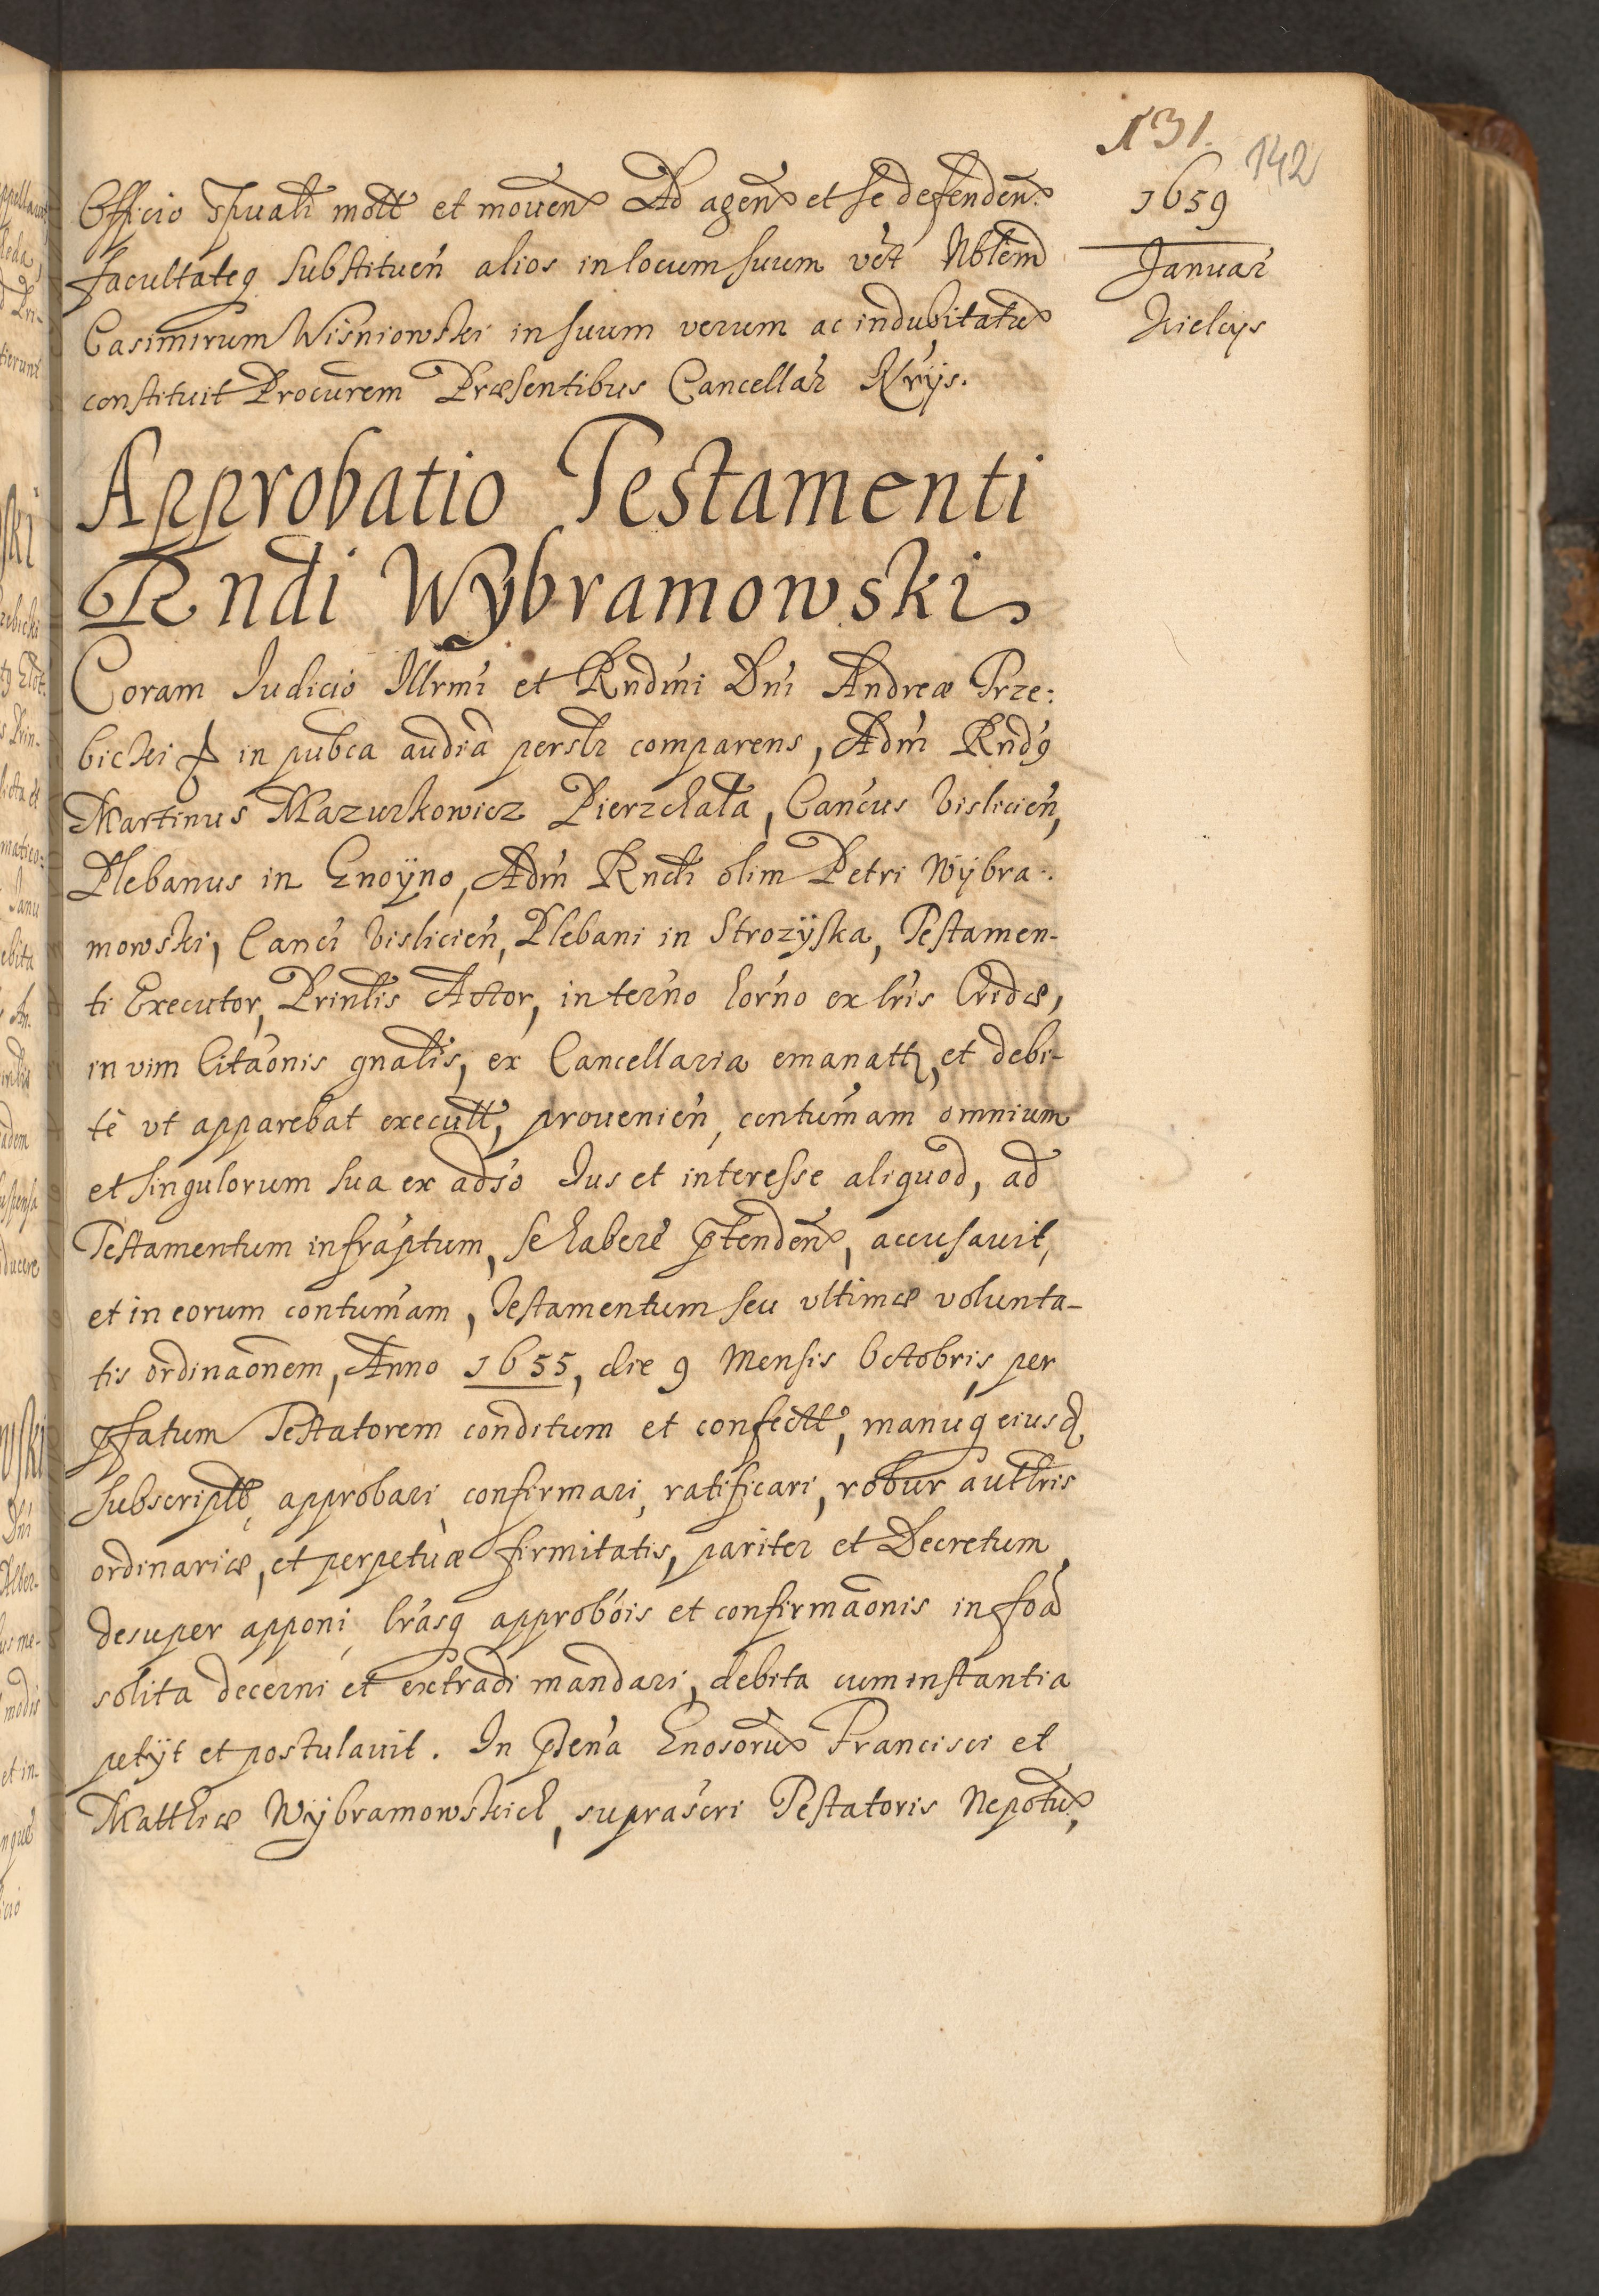 131.
142
1659
Januar
Kielcys
Officio Spuali mott et mouen Ad agen et se defenden
facultateq substituen alios in locum suum vet Nblem
Casimirum Wisniowski in suum verum ac indubitatu
constituit Procurem Præsentibus Cancellar Nrijs.
Approbatio Testamenti
Rndi Wybramowski
Coram Iudicio Illrmi et Rndmi Dni Andreæ Trze:
bicki in pubca audia perslr comparens, Adm Rndq
Martinus Mazurkowicz Pierzchała, Cancus Vislicien,
Plebanus in Gnoyno, Adm Rndi olim Petri Wybra:
mowski, Canci Vislicien, Plebani in Strozyska, Testamen-
ti Executor, Prinlis Actor, in terno Corno ex lris Credæ,
in vim Citaonis gnalis, ex Cancellaria emanatt, et debi-
tè vt apparebat execult, prouenien, contumam omnium
et singulorum sua ex adso Ius et interesse aliquod, ad
Testamentum infraptum, se habere ptenden, accusauit,
et in eorum contumam, Testamentum seu vltimæ volunta-
tis ordinaonem, Anno 1655, die 9 Mensis Octobris, per
pfatum Testatorem conditum et confectt, manuq eiusd
subscriptt, approbari, confirmari, ratificari, robur authris
ordinariæ, et perpetuæ firmitatis, pariter et Decretum
desuper apponi, lrasq approbois et confirmaonis in foa
solita decerni et extradi mandari, debita cum instantia
petijt et postulauit. In pñtena Gnosoru Francisci et
Matthiæ Wybramowskich, suprascri Testatoris Nepotu,